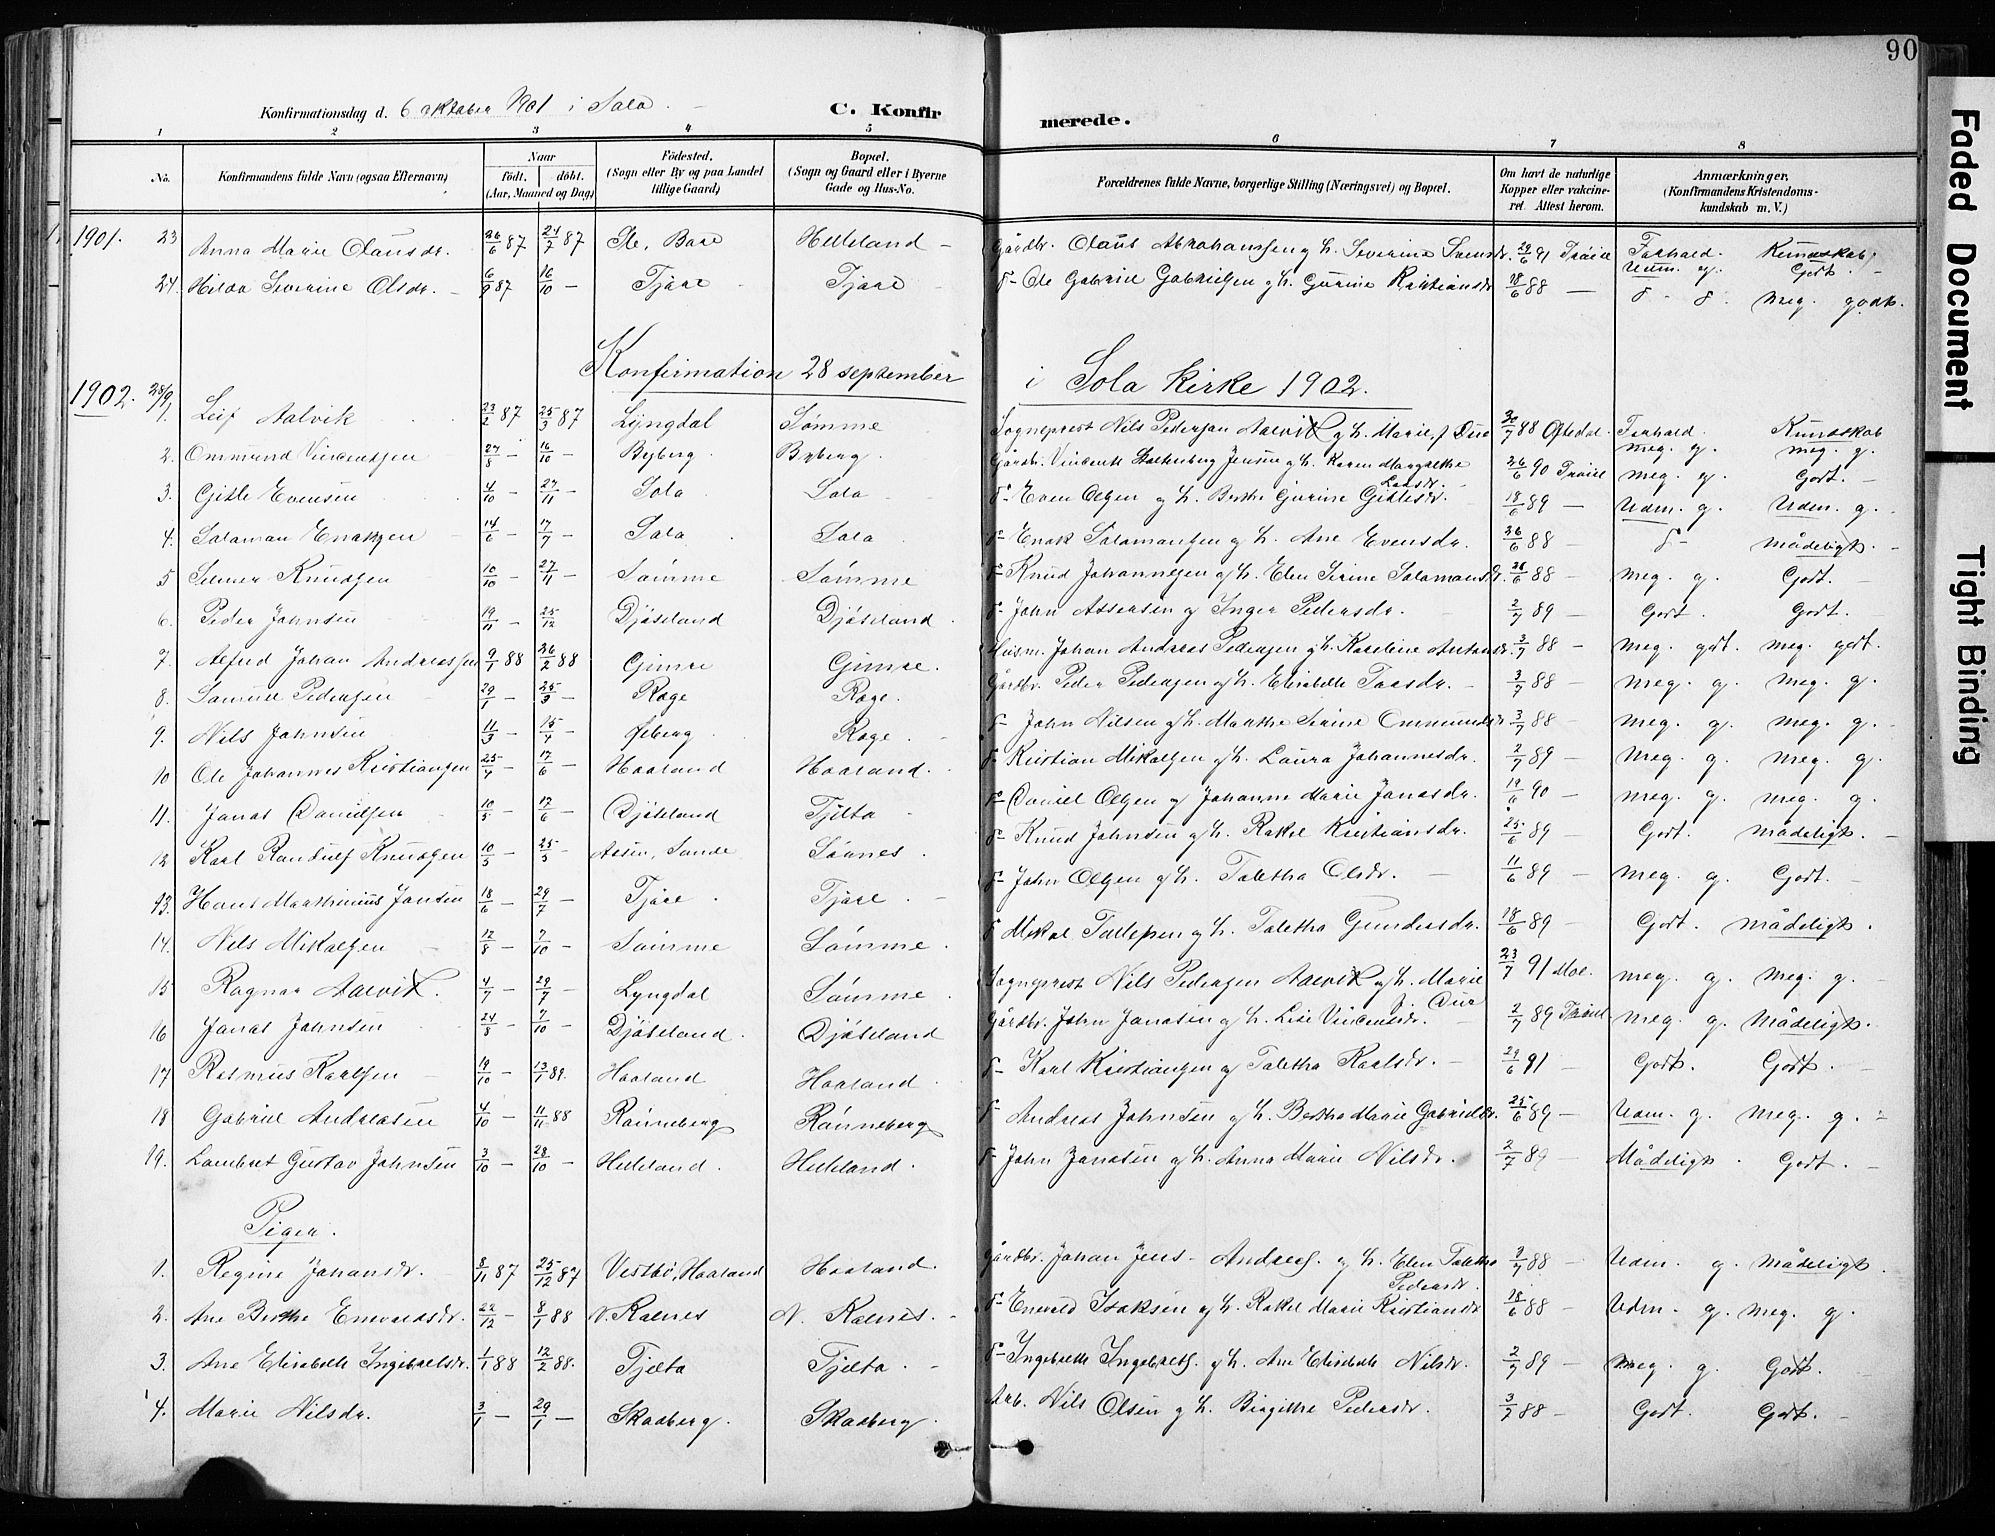 90
Faded Document
Tight Binding
Konfirmationsdag d. 6 oktober 1901 i Sola. C. Konfirmerede.
1 2 3 4 5 6 7 8
No. Konfirmandens fulde Navn (ogsaa Efternavn) Naar født. døbt. (Aar, Maaned og Dag) Födested. (Sogn eller By og paa Landet tillige Gaard) Bopæl. (Sogn og Gaard eller i Byerne Gade og Hus-No. Forældrenes fulde Navne, borgerlige Stilling (Næringsvei) og Bopæl. Om havt de naturlige Kopper eller vakcineret. Attest herom. Anmærkninger. (Konfirmandens Kristendomskundskab m. V.)
1901. 23 Anna Marie Olausdr. 26/6 87 24/7 87 Helleland Gårdbr. Olaus Abrahamsen g h. Severine 29/6 91 Forhold. Kundskab. Udm. g. Godt.
24. Hilda Severine Olsdr. 6/9 87 16/10 - Tjøre Tjøre d- Ole Gabriel Gabrielsen g h. Gurine Kristiansdr 18/6 88 - d - d. meg. godt.
Konfirmation 28 september i Sola Kirke 1902.
1902. 28/9 1. Leif Aalvik 23/2 87 25/3 87 Lyngdal Sømme Sogneprest Nils Pedersen Aalvik g h. Marie f. Due 30/7 88 Oftedal. Forhold. Kundskab meg. g. meg. g.
2. Ommund Vincentsen 27/8 - 16/10 - Byberg Byberg Gårdbr. Vincents Stoltenberg Jensen g h. Karen Margrethe Larsdr. 26/6 90 meg. g. Godt.
3. Gitle Evensen 4/10 - 27/11 - Sola Sola d- Even Olsen g h. Berthe Gurine Gitlesdr. 18/6 89 - Udm. g. Udm. g.
4. Salamon Enoksen 14/6 - 17/7 - Sola Sola d- Enok Salamonsen g h. Ane Evensdr. 26/6 88 - d- mådeligt.
5 Selmer Knudsen 10/10 - 27/11 - Sømme Sømme d- Knud Johannesen g h. Elen Serine Salamonsdr. 26/6 88 - meg. g. Godt.
6. Peder Johnsen 19/11 - 25/12 Djøseland Djøseland d- John Assersen g Inger Pedersdr. 2/7 89 - Godt. Godt.
7. Alfred Johan Andreassen 9/1 88 26/2 88 Gimre Gimre. Husm. Johan Andreas Pedersen g h. Karoline Antonsdr. 3/7 88 - meg. gdt. meg. gdt.
8. Samuel Pedersen 29/1 - 25/3 - Røge Røge. Gårdbr. Peder Pedersen g h. Elisabeth Toresdr. 3/7 88 - meg. g. meg. g.
9. Nils Johnsen 11/3 - 15/4 - Røge. d- John Nilsen g h. Marthe Serine Ommundsdr 3/7 88 - meg. g. meg. g.
10 Ole Johannes Kristiansen 25/4 - 17/6 - Haaland Haaland. d- Kristian Mikalsen g h. Laura Johannesdr. 2/7 89 - meg. g. meg. g.
11. Jonas Danielsen 10/5 - 17/6 - Djøseland Tjelta d- Daniel Olsen g Johanne Marie Jonasdr. 19/6 90 - meg. g. meg. g.
12 Karl Randulf Knudsen 10/5 - 25/5 - Sande Sønnes. d- Knud Johnsen g h. Rakel Kristiansdr. 25/6 89 - Godt. mådeligt.
13. Hans Marthinius Jonsen 18/6 - 29/7 - Tjøre. Tjøre. d- John Olsen g h. Taletha Olsdr. 11/6 89 - meg. g. Godt.
14. Nils Mikalsen 12/8 - 7/10 - Sømme Sømme. d- Mikal Tollefsen g h. Taletha Gundersdr. 18/6 89 - Godt. mådeligt.
15 Ragnar Aalvik. 4/7 - 29/7 - Lyngdal Sømme Sogneprest Nils Pedersen Aalvik g h. Marie f. Due 23/7 91 Moe. meg. g. meg. g.
16 Jonas Johnsen 24/8 - 7/10 - Djøseland. Djøseland Gårdbr. John Jonasen g h. Lise Vincentsdr. 2/7 89 meg. g. mådeligt.
17 Rasmus Karlsen 19/10 - 13/1 89. Haaland Haaland. d- Karl Kristiansen g Taletha Karlsdr. 29/6 91 Godt. Godt.
18 Gabriel Andreasen 4/10 - 11/11 88 Rønneberg Rønneberg d- Andreas Johnsen g h. Berthe Marie Gabrielsdr. 25/6 89 - Udm. g. meg. g.
19. Lambret Gustav Johnsen 3/10 - 28/10 - Helleland. Helleland. d- John Jonasen g h. Anna Marie Nilsdr. 2/7 89 - Mådeligt. Godt.
Piger.
1. Regine Johansdr. 8/11 87 25/12 87 Vestbø, Haaland Haaland. Gårdbr. Johan Jens Andrees. g h. Elen Taletha Pedersdr. 3/7 88 - Udm. g. mådeligt.
2. Ane Berthe Enevaldsdr. 22/12 - 8/1 88 N. Kolnes N. Kolnes. d- Enevald Isaksen g h. Rakel Marie Kristiansdr 18/6 88 - Udm. g. meg. g.
3. Ane Elisabeth Ingebretsdr. 1/1 88 12/2 88. Tjelta Tjelta. d- Ingebreth Ingebrets. g h. Ane Elisabeth Nilsdr. 2/7 89 - meg. g. Godt.
4. Marie Nilsdr. 3/1 - 29/1 - Skadberg. Skadberg. Arb. Nils Olsen g h. Birgitthe Pedersdr 3/7 88 - Godt. Godt.